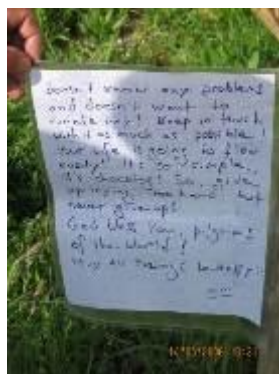 doesn't know any problems
and doesn't want to
create any! Keep in touch
with it as much as possible!
life is going to flow
easily! It's so simple,
it's shocking! So, give
up trying, but
never give up!
God bless you, pilgrims
of the World!